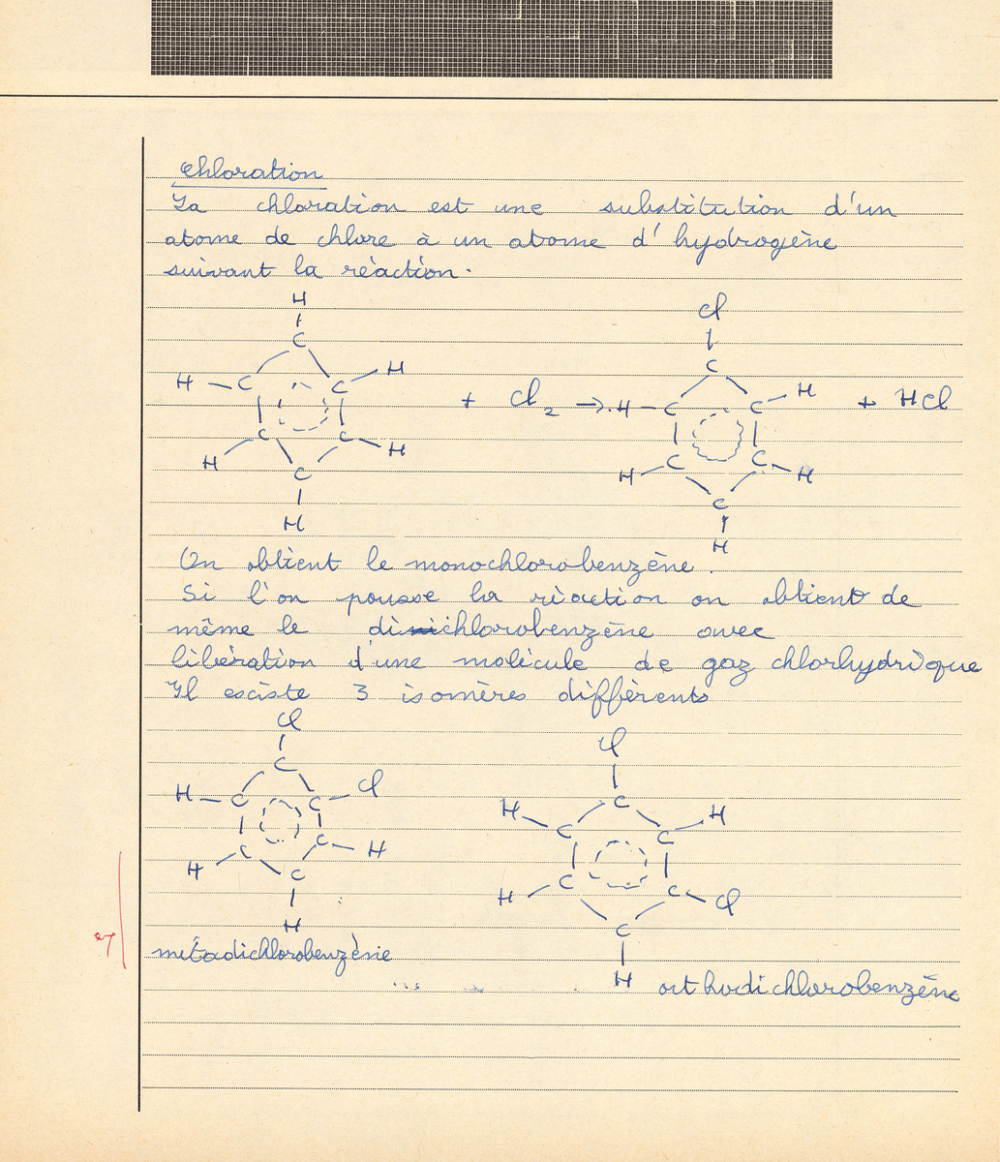 Chloration
La chloration est une substitution d'un
atome de chlore à un atome d'hydrogène
suivant la réaction.
H
C
H - C C - H
C C
H H
C
H
+ Cl₂ →
Cl
C
H - C C - H
C C
H H
C
H
+ HCl
On obtient le monochlorobenzène.
Si l'on pousse la réaction on obtient de
même le dichlorobenzène avec
libération d'une molécule de gaz chlorhydrique
Il esciste 3 isomères différents
Cl
C
H - C C - Cl
C C - H
H C
H
métadichlorobenzène
Cl
C
H C C H
H C C Cl
C
H
orthodichlorobenzène